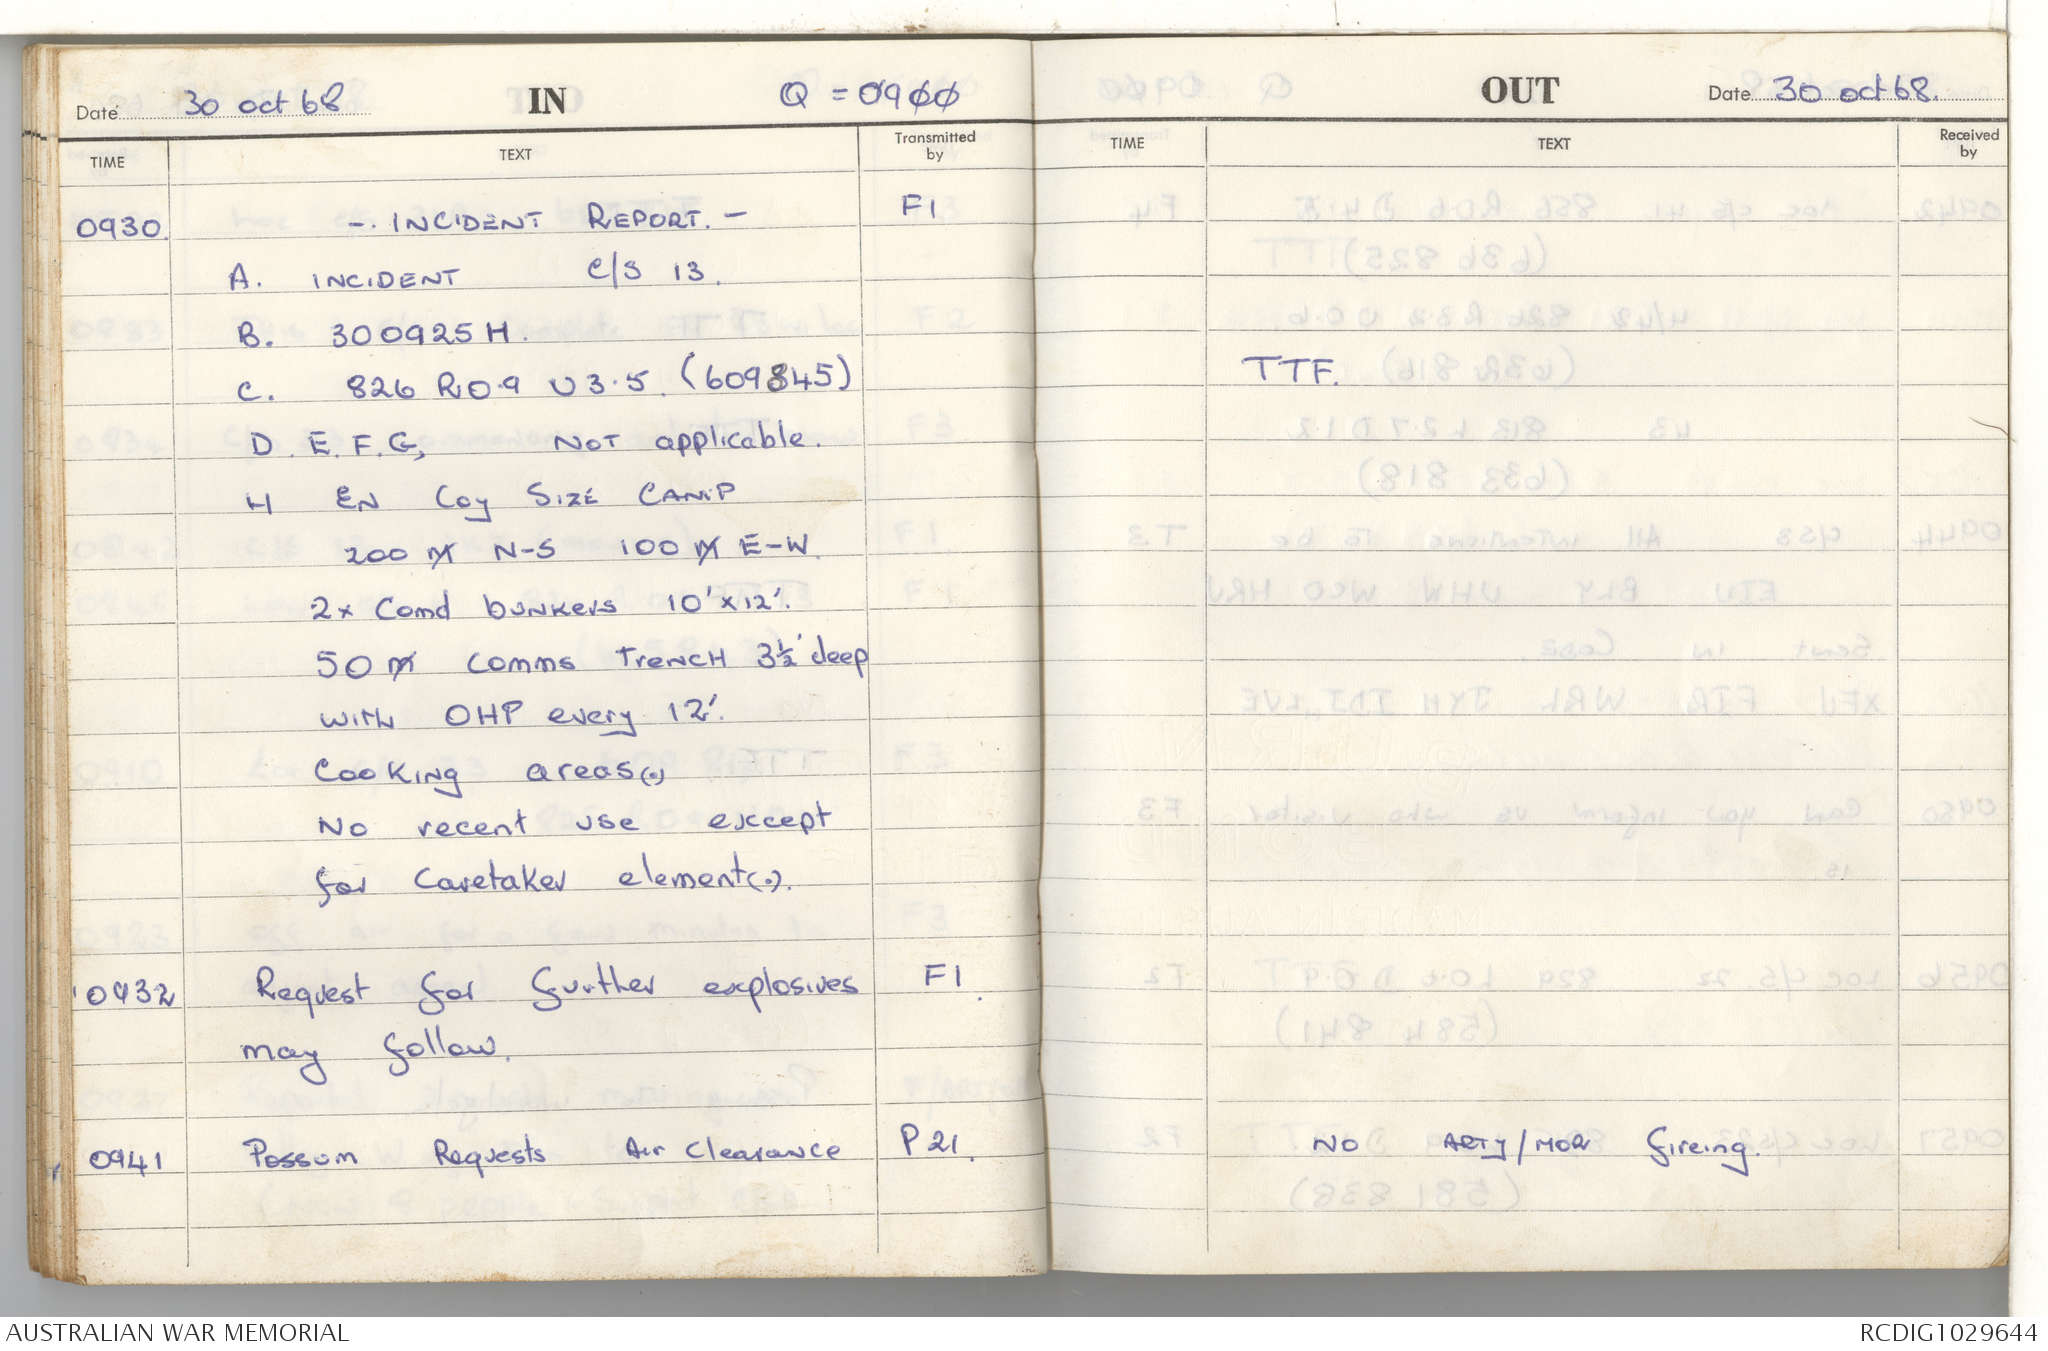 Date 30 oct 68 IN Q = 0900
TIME TEXT Transmitted by
0930. -. INCIDENT REPORT. - F1
A. INCIDENT C/S 13.
B. 300925H.
C. 826 R0.9 U3.5. (609845)
D. E. F. G, NOT applicable.
H EN Coy SIZE CAMP
200 M N-S 100 M E-W.
2x Comd bunkers 10' x 12'.
50 M comms TrencH 3½' deep
with OHP every 12'.
Cooking areas(.)
No recent use except
for Caretaker element(.).
0932 Request for further explosives F1.
may follow.
0941 Possum Requests Air Clearance P21.
OUT Date 30 oct 68.
TIME TEXT Received by
TTF.
NO ARTY/MOR fireing.
AUSTRALIAN WAR MEMORIAL RCDIG1029644